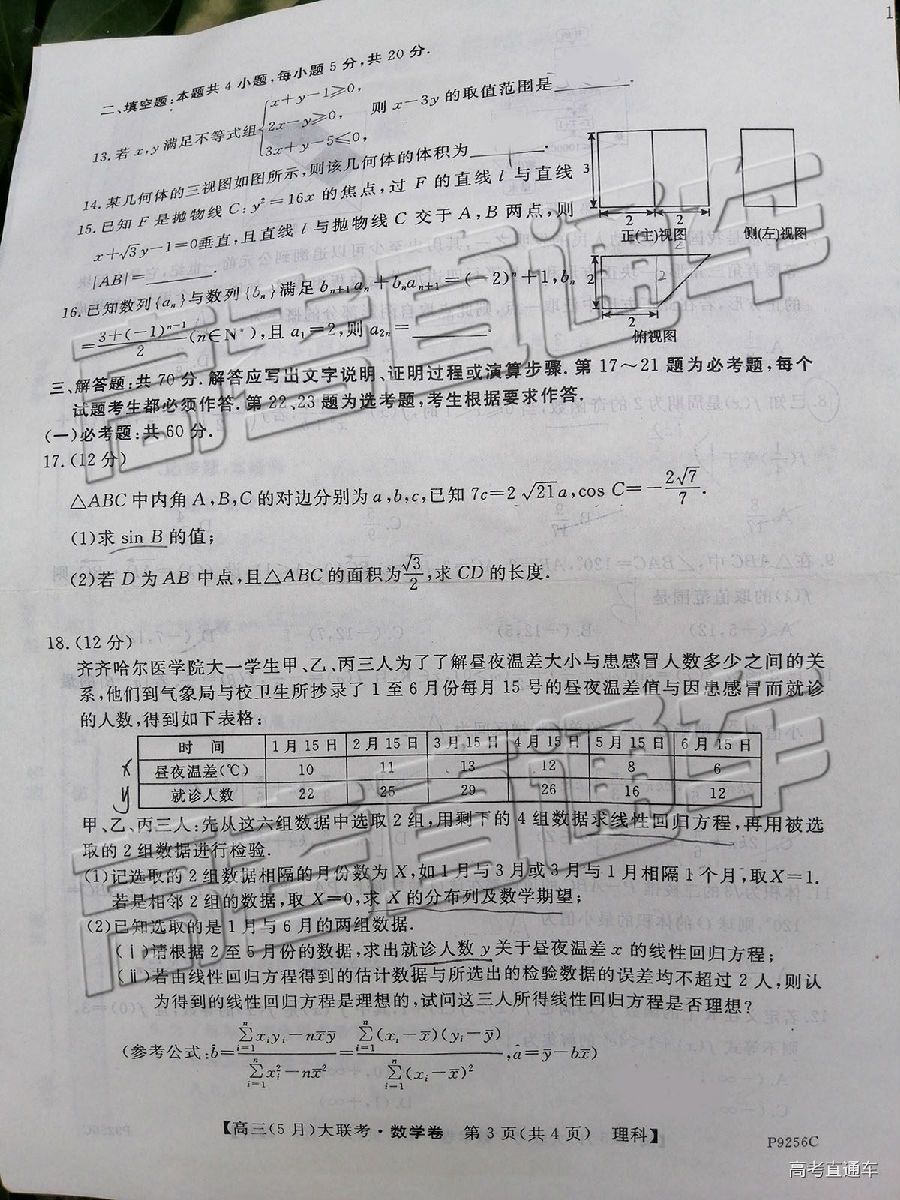 1
二、填空题:本题共4小题,每小题5分,共20分.
13.若x,y满足不等式组{x+y-1≥0, 2x-y≥0, 3x+y-5≤0, 则x-3y的取值范围是______.
14.某几何体的三视图如图所示,则该几何体的体积为______.
15.已知F是抛物线C:y²=16x的焦点,过F的直线l与直线
x+√3y-1=0垂直,且直线l与抛物线C交于A,B两点,则
|AB|=______.
3
2 2
正(主)视图
侧(左)视图
2
2
2
俯视图
16.已知数列{aₙ}与数列{bₙ}满足bₙ₊₁aₙ+bₙaₙ₊₁=(-2)ⁿ+1,bₙ
=(3+(-1)ⁿ⁻¹)/2(n∈N*),且a₁=2,则a₂ₙ=______.
三、解答题:共70分.解答应写出文字说明、证明过程或演算步骤.第17~21题为必考题,每个
试题考生都必须作答.第22、23题为选考题,考生根据要求作答.
(一)必考题:共60分.
17.(12分)
△ABC中内角A,B,C的对边分别为a,b,c,已知7c=2√21a,cos C=-2√7/7.
(1)求sin B的值;
(2)若D为AB中点,且△ABC的面积为√3/2,求CD的长度.
18.(12分)
齐齐哈尔医学院大一学生甲、乙、丙三人为了了解昼夜温差大小与患感冒人数多少之间的关
系,他们到气象局与校卫生所抄录了1至6月份每月15号的昼夜温差值与因患感冒而就诊
的人数,得到如下表格:
时 间 1月15日 2月15日 3月15日 4月15日 5月15日 6月15日
x 昼夜温差(℃) 10 11 13 12 8 6
y 就诊人数 22 25 29 26 16 12
甲、乙、丙三人:先从这六组数据中选取2组,用剩下的4组数据求线性回归方程,再用被选
取的2组数据进行检验.
(1)记选取的2组数据相隔的月份数为X,如1月与3月或3月与1月相隔1个月,取X=1.
若是相邻2组的数据,取X=0,求X的分布列及数学期望;
(2)已知选取的是1月与6月的两组数据.
(ⅰ)请根据2至5月份的数据,求出就诊人数y关于昼夜温差x的线性回归方程;
(ⅱ)若由线性回归方程得到的估计数据与所选出的检验数据的误差均不超过2人,则认
为得到的线性回归方程是理想的,试问这三人所得线性回归方程是否理想?
(参考公式:b̂=(∑ᵢ₌₁ⁿxᵢyᵢ-nx̄ȳ)/(∑ᵢ₌₁ⁿxᵢ²-nx̄²)=(∑ᵢ₌₁ⁿ(xᵢ-x̄)(yᵢ-ȳ))/(∑ᵢ₌₁ⁿ(xᵢ-x̄)²),â=ȳ-b̂x̄)
【高三(5月)大联考·数学卷 第3页(共4页) 理科】
P9256C
高考直通车
高考直通车
高考直通车